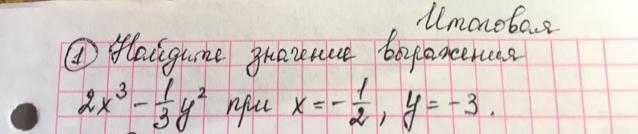 Итоговая
① Найдите значение выражения
2x³ - 1/3 y² при x = - 1/2, y = -3.